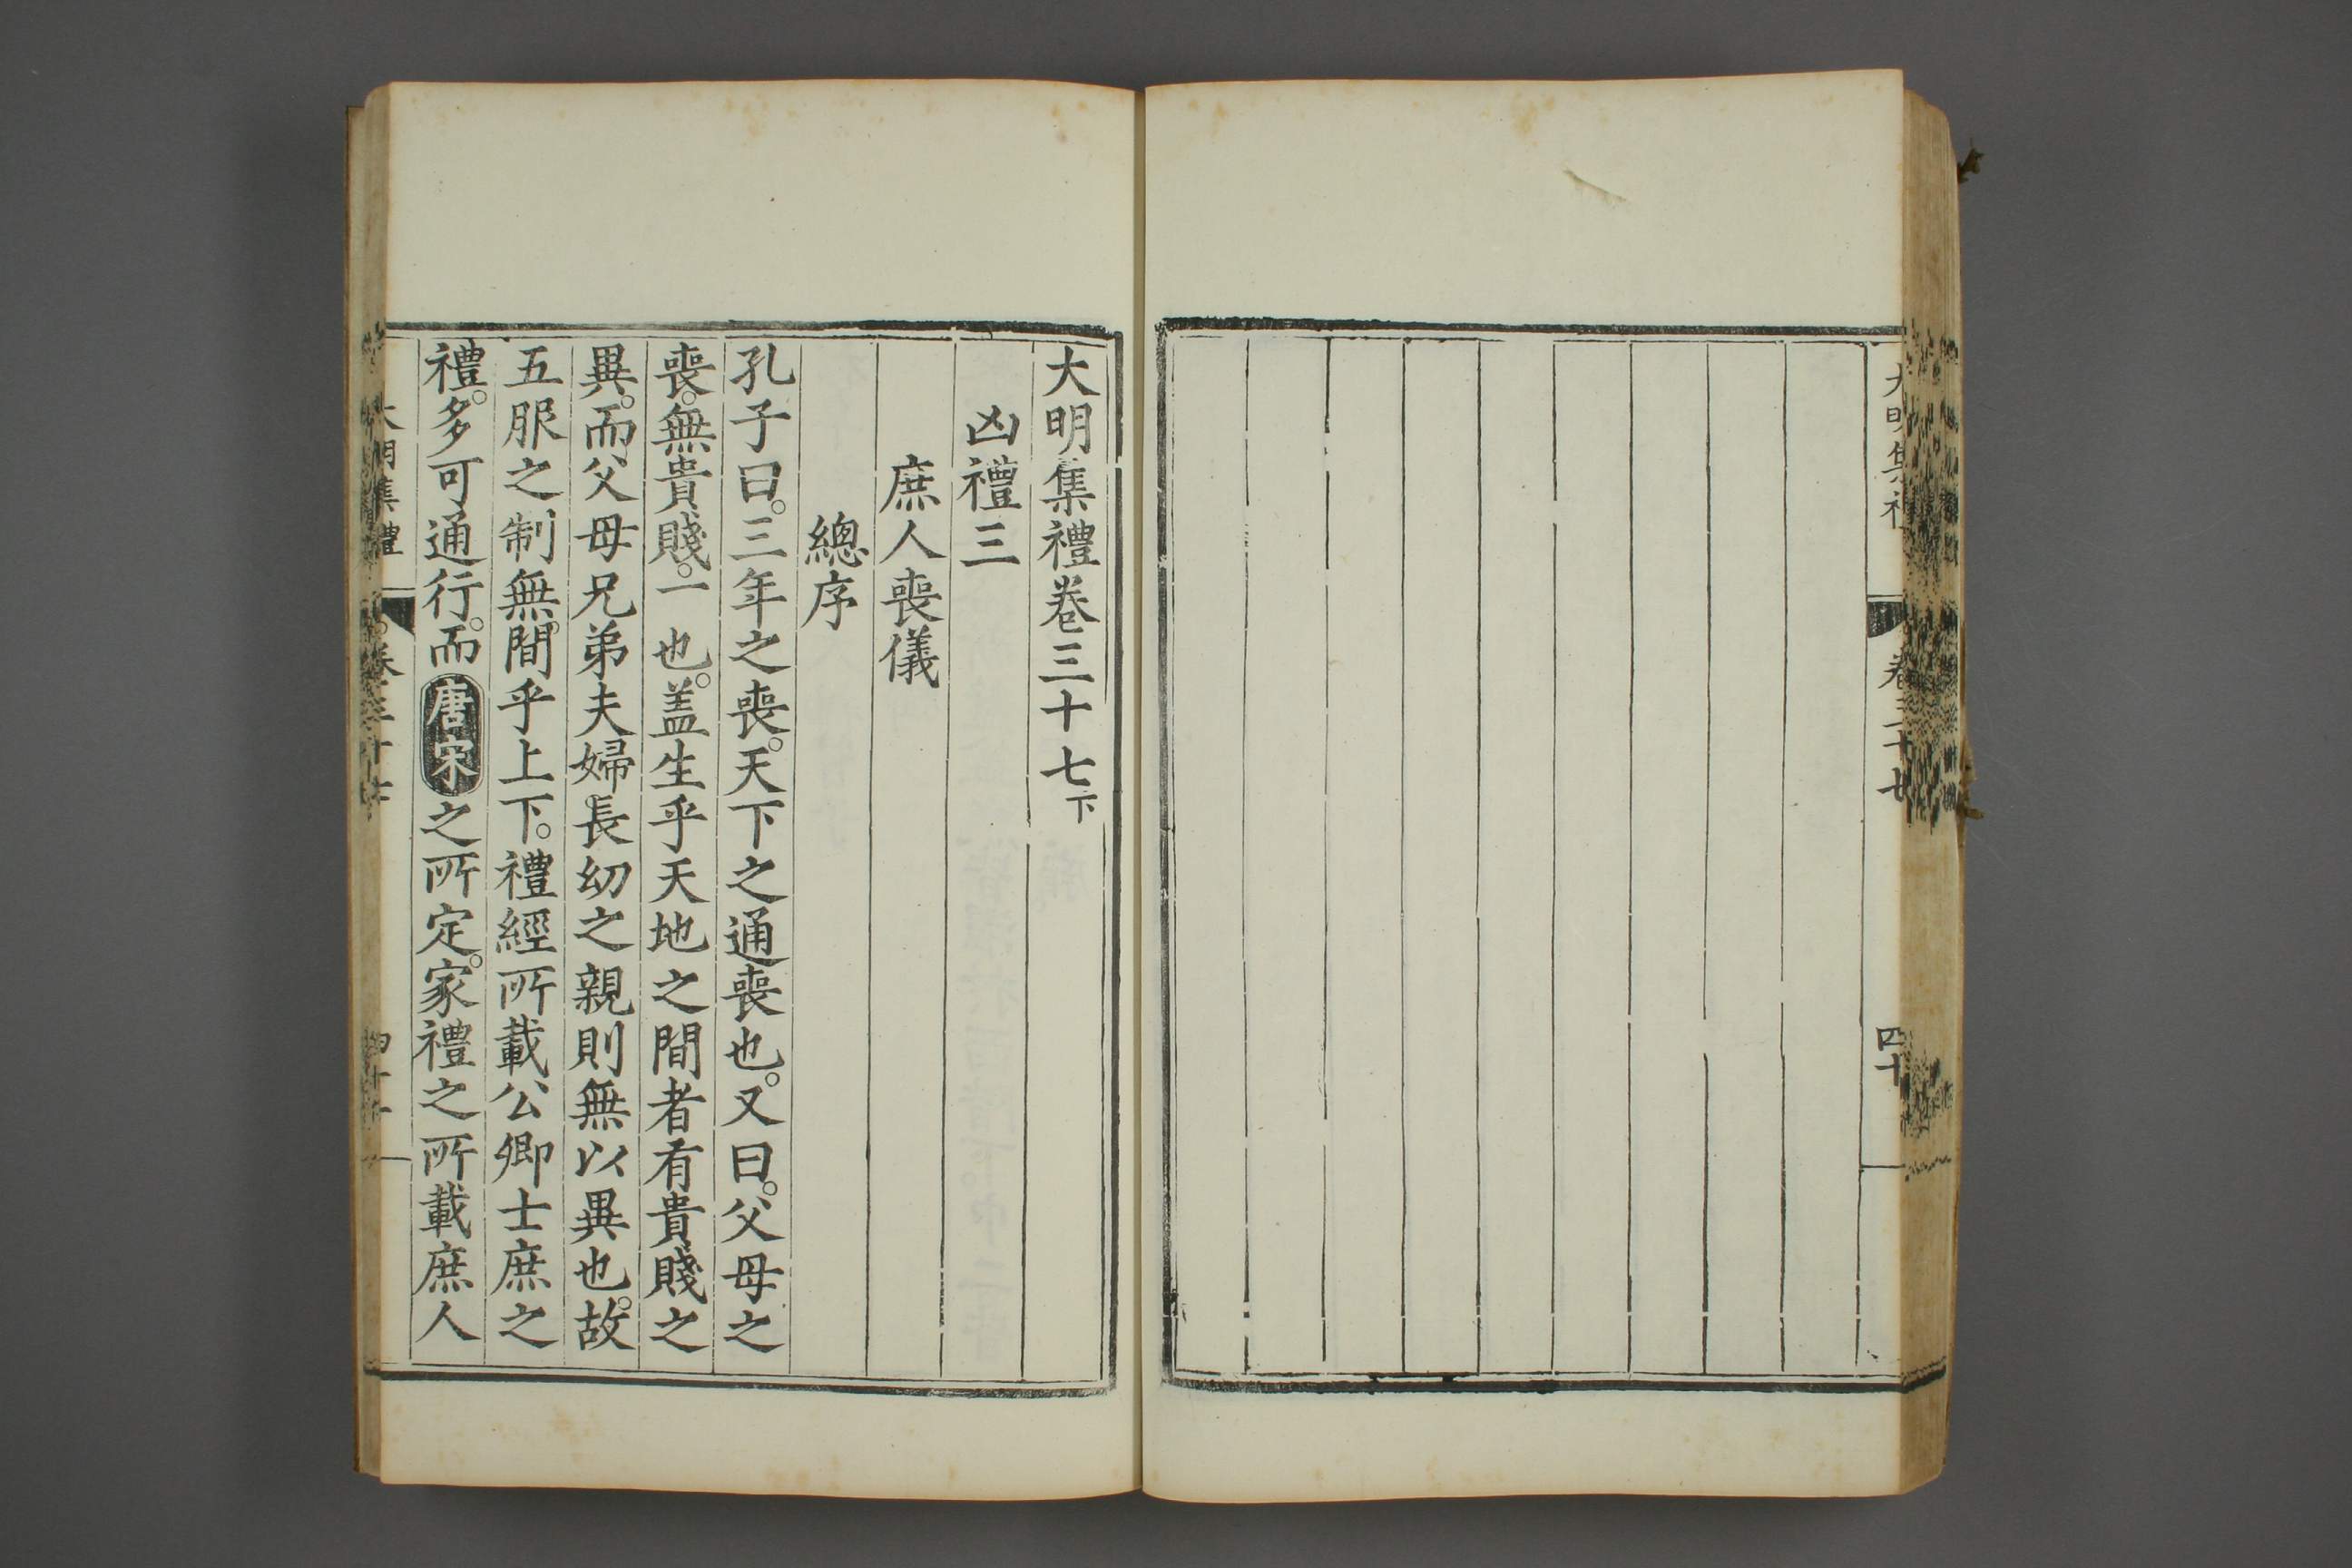 大明集禮
卷三十七
四十
大明集禮卷三十七下
凶禮三
庶人喪儀
總序
孔子曰。三年之喪。天下之通喪也。又曰。父母之
喪。無貴賤。一也。盖生乎天地之間者有貴賤之
異。而父母兄弟夫婦長幼之親則無以異也。故
五服之制無間乎上下。禮經所載公卿士庶之
禮。多可通行。而唐宋之所定。家禮之所載庶人
大明集禮
卷三十七